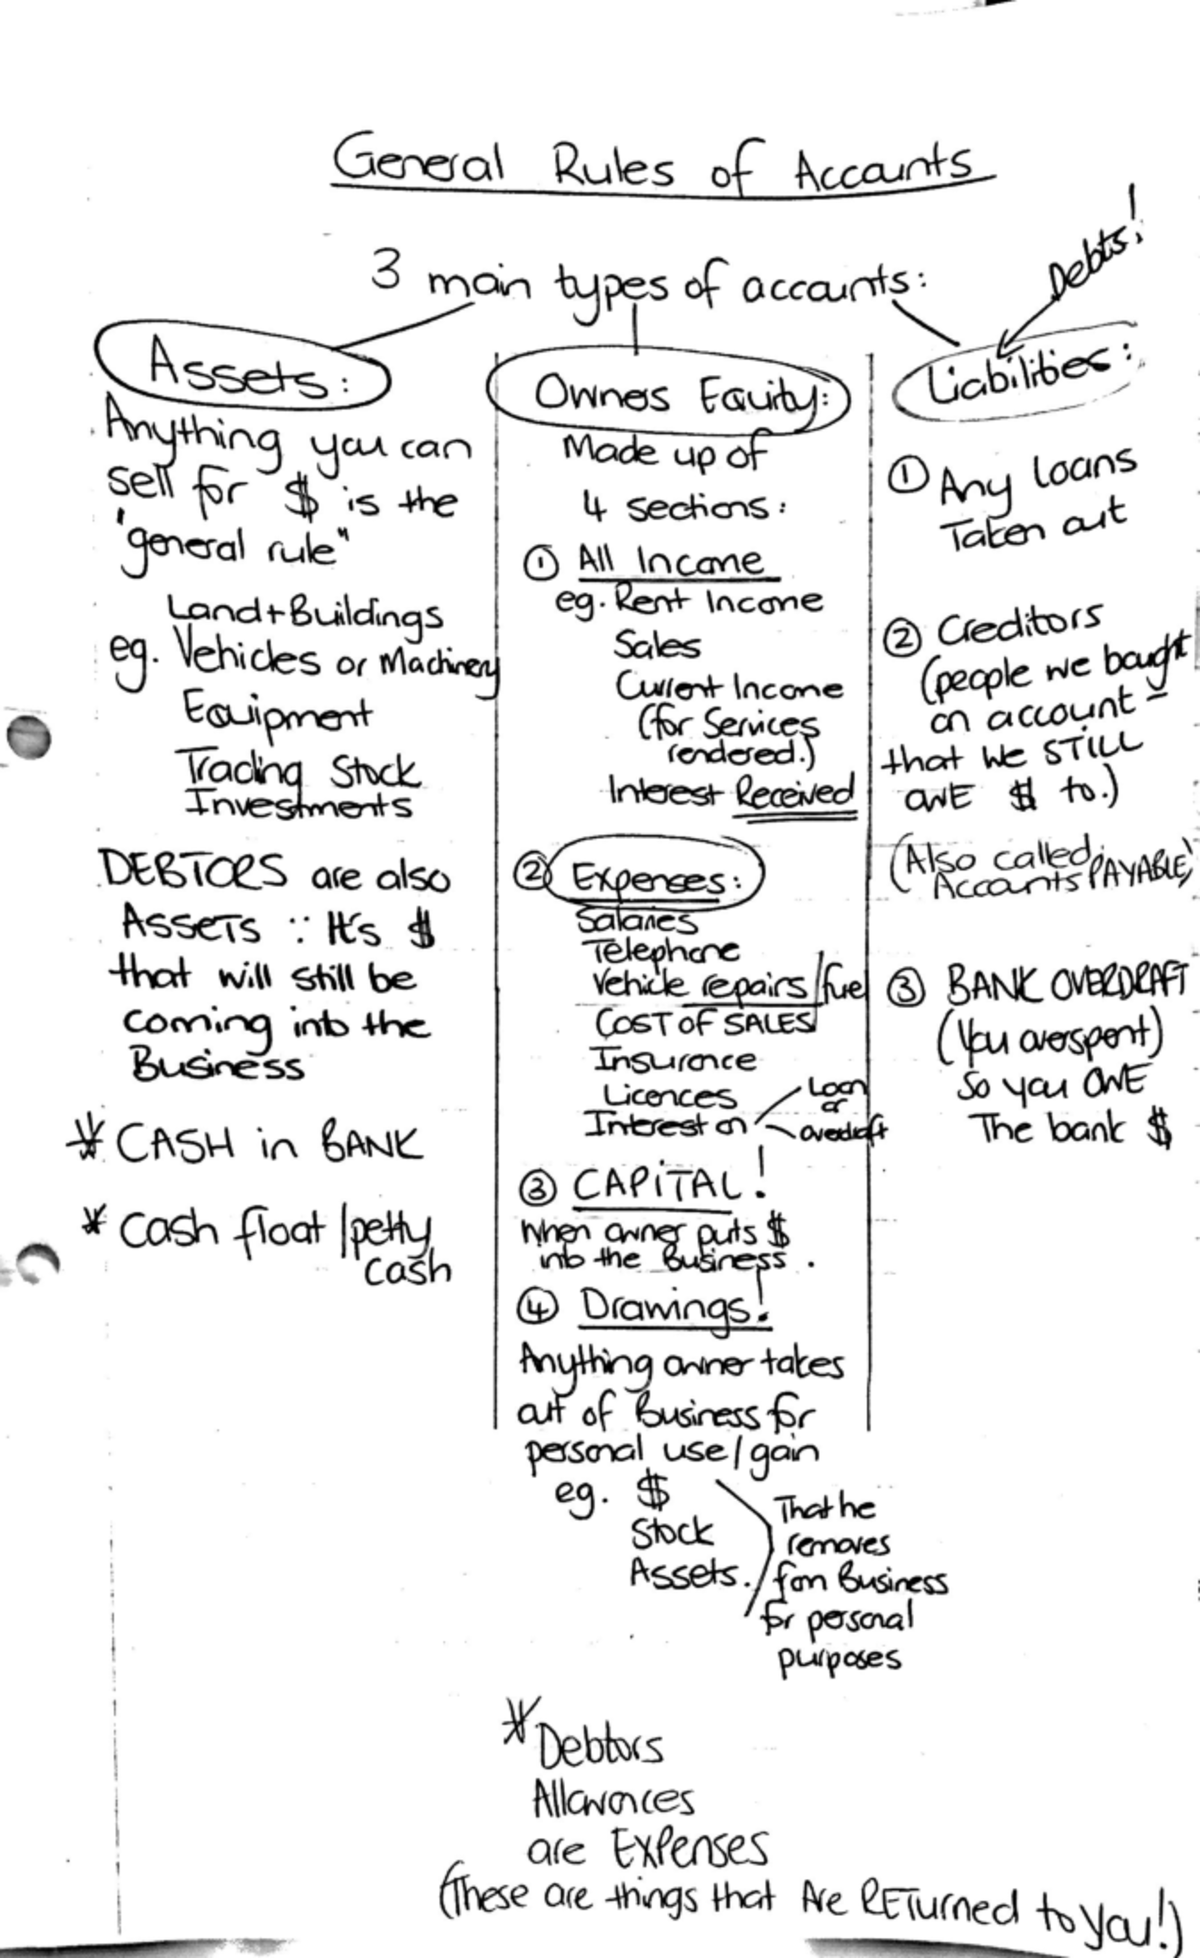 General Rules of Accounts
3 main types of accounts:
Debts!
Assets:
Anything you can
sell for $ is the
"general rule"
Land + Buildings
eg. Vehicles or Machinery
Equipment
Trading Stock
Investments
DEBTORS are also
ASSETS ∵ It's $
that will still be
coming into the
Business
* CASH in BANK
* Cash float / petty
cash
Ownes Equity:
Made up of
4 sections:
① All Income
eg. Rent Income
Sales
Current Income
(for Services
rendered.)
Interest Received
② Expenses:
Salaries
Telephone
Vehicle repairs / fuel
COST OF SALES
Insurance
Licences
Interest on
Loan
or
overdraft
③ CAPITAL!
When owner puts $
into the Business.
④ Drawings!
Anything owner takes
out of Business for
personal use / gain
eg. $
Stock
Assets.
That he
removes
from Business
for personal
purposes
* Debtors
Allowances
are EXPENSES
(These are things that Are RETurned to you!)
Liabilities:
① Any loans
Taken out
② Creditors
(people we bought
on account –
that we STILL
OWE $ to.)
(Also called:
Accounts PAYABLE)
③ BANK OVERDRAFT
(You overspent)
so you OWE
The bank $